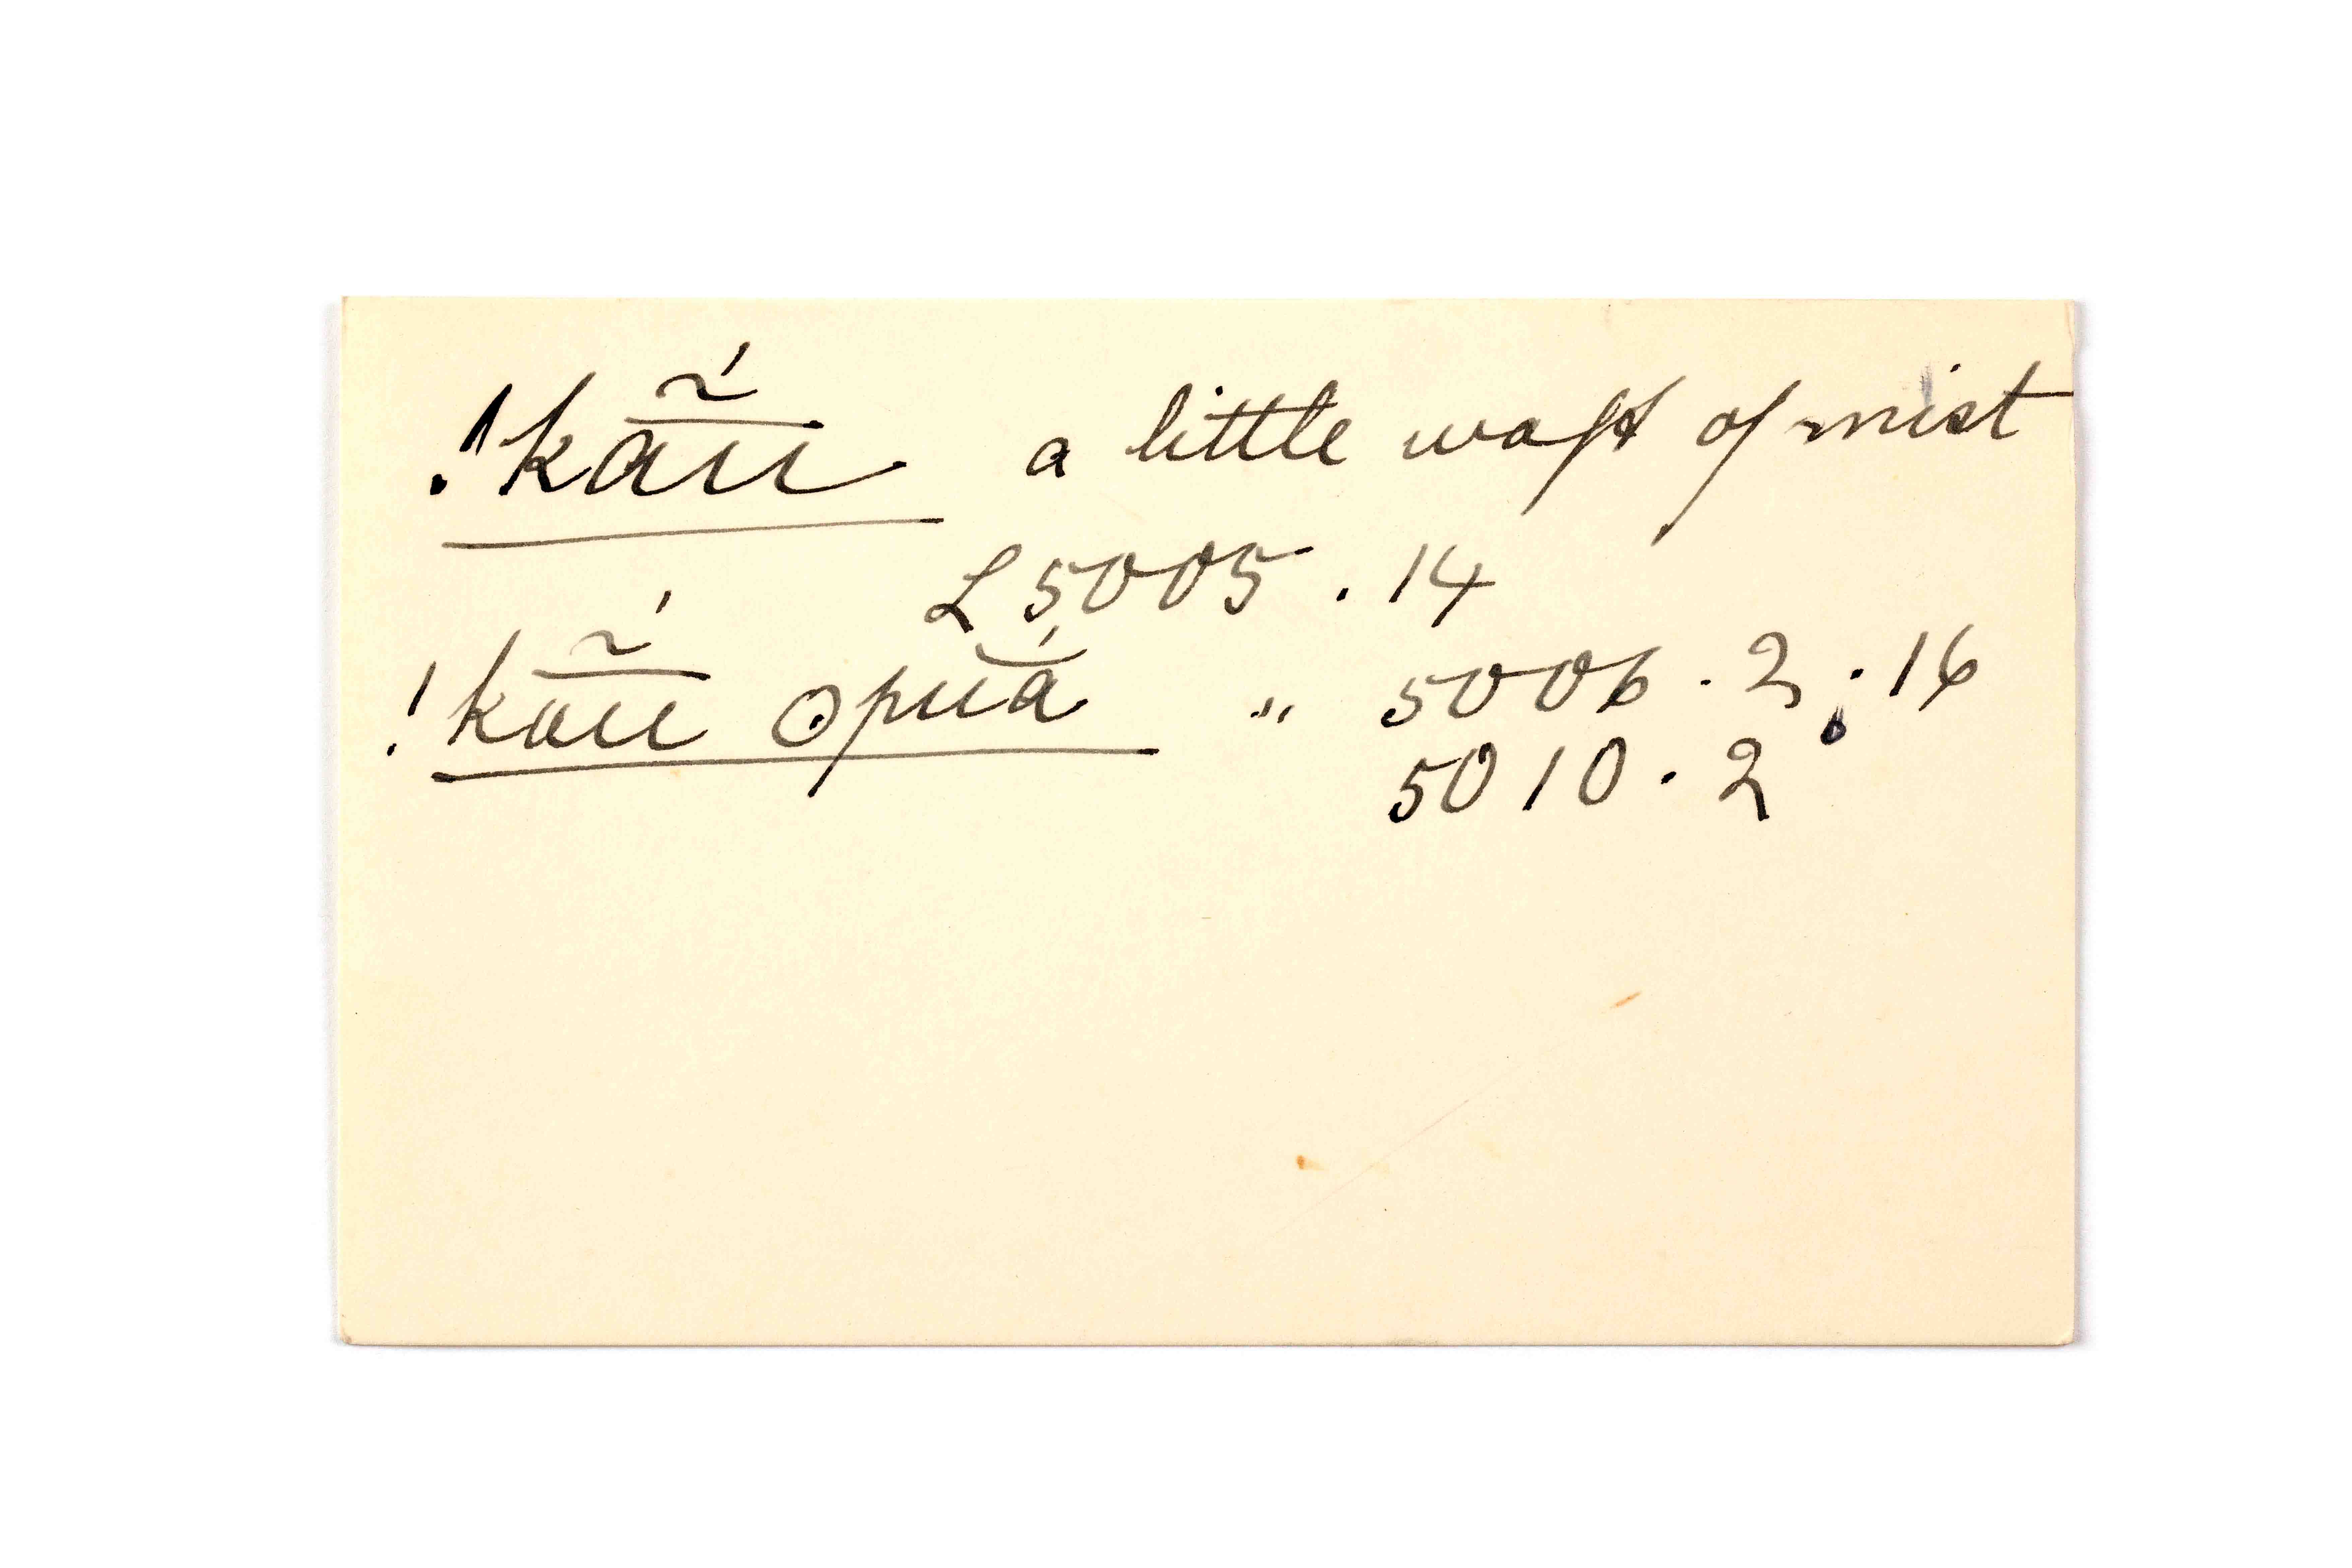 !kã̄́u a little waft of mist
L 5005 . 14
!kã̄́u ʘpŭá " 5006 . 2 . 16
5010 . 2